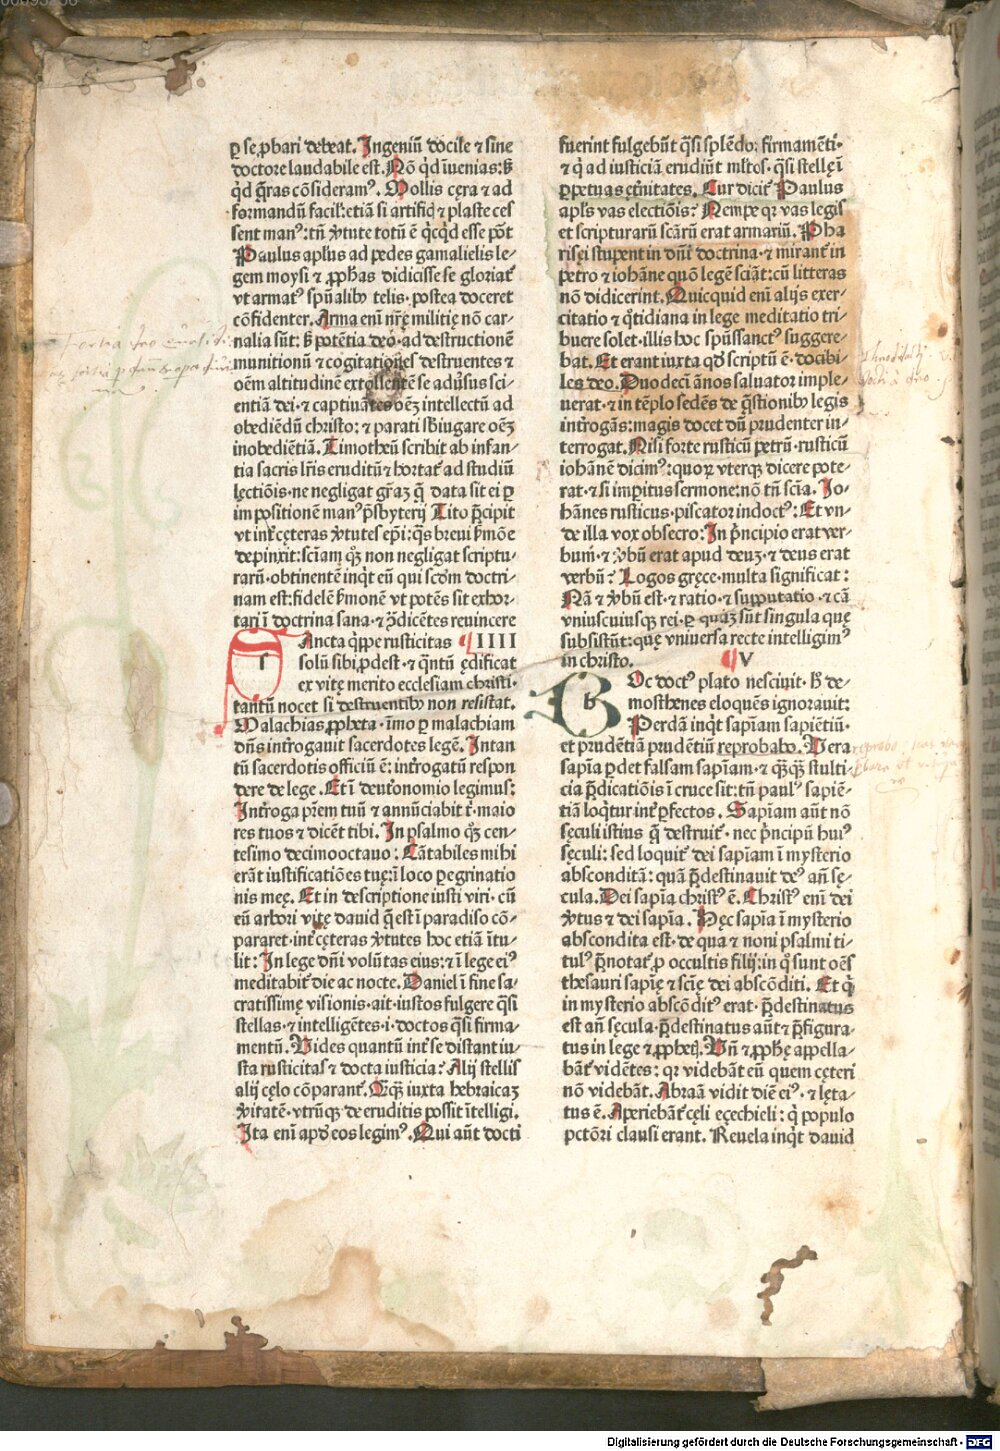 ꝑ se ꝓbari debeat. Ingeniū docile ⁊ sine
doctore laudabile est. Nō qͥd īuenias: ſꝫ
qͥd q̄ras cōsideramꝰ. Mollis cęra ⁊ ad
formandū facil': etiā si artificꝭ ⁊ plaste ces
sent manꝰ: tn̄ v̓tute totū ē qͥcqͥd esse pōt
Paulus apłus ad pedes gamalielis le-
gem moysi ⁊ ꝓph̄as didicisse se gloriat᷑
vt armatꝰ spūalibꝰ telis. postea doceret
cōfidenter. Arma eni nr̄ę militię nō car-
nalia sūt: ſꝫ potētia deo. ad destructionē
munitionū ⁊ cogitationes destruentes ⁊
oēm altitudinē extollentē se adūsus sci-
entiā dei. ⁊ captiuātes oēꝫ intellectū ad
obediēdū christo: ⁊ parati sb̓iugare oēꝫ
inobediētiā. Timotheū scribit ab infan-
tia sacris lr̄is eruditū ⁊ hortat᷑ ad studiū
lectiōis. ne negligat gr̄aꝫ q̄ data sit ei ꝑ
impositionē manꝰ p̄sbyterij Tito p̄cipit
vt int᷑ cęteras v̓tutes ep̄i: q̄s breui ẜmōe
depinxit: sciam qͦꝫ non negligat scriptu-
rarū. obtinentē inqͥt eū qui scd̄m doctri-
nam est: fidelē ẜmonē vt potēs sit exhor-
tari ī doctrina sana. ⁊ ꝯ̄dicētes reuincere
Sancta qͥppe rusticitas ¶IIII
solū sibi ꝓdest. ⁊ qͣntū ędificat
ex vitę merito ecclesiam christi.
tantū nocet si destruentibꝰ non resistat.
Malachias ꝓpheta. īmo ꝑ malachiam
dn̄s int᷑rogauit sacerdotes legē. In tan
tū sacerdotis officiū ē: int᷑rogatū respon
dere de lege. Et ī deut᷑onomio legimus:
Int᷑roga pr̄em tuū ⁊ annūciabit t̓. maio
res tuos ⁊ dicēt tibi. In psalmo qͦꝫ cen-
tesimo decimooctauo: Cātabiles mihi
erāt iustificatiōes tuę: ī loco peregrinatio
nis meę. Et in descriptione iusti viri. cū
eū arbori vitę dauid q̄ est ī paradiso cō-
pararet. int᷑ cęteras v̓tutes hoc etiā ītu-
lit: In lege dn̄i volūtas eius: ⁊ ī lege eiꝰ
meditabit᷑ die ac nocte. Daniel ī fine sa-
cratissimę visionis. ait. iustos fulgere qͣsi
stellas. ⁊ intelligētes. i. doctos qͣsi firma-
mentū. Vides quantū int᷑ se distant iu-
sta rusticitas ⁊ docta iusticia: Alij stellis
alij cęlo cōparant᷑. Qͣqͣꝫ iuxta hebraicaꝫ
v̓itatē. vtrūqꝫ de eruditis possit ītelligi.
Ita eni apd̓ eos legimꝰ. Qui aūt docti
fuerint fulgebūt qͣsi splēdor firmamēti.
⁊ qͥ ad iusticiā erudiūt mltos. qͣsi stellę ī
ꝑpetuas ęt᷑nitates. Cur dicit᷑ Paulus
apłs vas electiōis: Nempe qꝛ vas legis
et scripturarū scārū erat armariū. Pha
risęi stupent in dn̄i doctrina. ⁊ mirant᷑ in
petro ⁊ iohāne quō legē sciāt: cū litteras
nō didicerint. Quicquid eni alijs exer-
citatio ⁊ qͦtidiana in lege meditatio tri-
buere solet. illis hoc spūssanctꝰ suggere-
bat. Et erant iuxta qd̓ scriptū ē. docibi-
les deo. Duodeci ānos saluator imple-
uerat. ⁊ in tēplo sedēs de q̄stionibꝰ legis
int᷑rogās: magis docet dū prudenter in-
terrogat. Nisi forte rusticū petrū. rusticū
iohānē dicimꝰ: quoꝝ vterqꝫ dicere pote-
rat. ⁊ si imperitus sermone: nō tn̄ scīa. Io-
hānes rusticus. piscator indoctꝰ: Et vn-
de illa vox obsecro: In p̓ncipio erat ver-
bum. ⁊ v̓bū erat apud deuꝫ. ⁊ deus erat
verbū: Logos gręce. multa significat:
Nā ⁊ v̓bū est. ⁊ ratio. ⁊ supputatio. ⁊ cā
vniuscuiusqꝫ rei. ꝑ quaꝫ sūt singula quę
subsistūt: quę vniuersa recte intelligimꝰ
in christo. ¶V
Hoc doctꝰ plato nesciuit. ſꝫ de-
mosthenes eloquēs ignorauit:
Perdā inqͥt sapiam sapiētiū.
et prudētiā prudētiū reprobabo. Vera
sapia ꝑdet falsam sapiam. ⁊ qͣꝫqͣꝫ stulti-
cia p̄dicatiōis ī cruce sit: tn̄ paulꝰ sapiē-
tiā loqͥtur int᷑ ꝑfectos. Sapiam aūt nō
sęculi istius q̄ destruit᷑. nec p̓ncipū huiꝰ
sęculi: sed loquit᷑ dei sapiam ī mysterio
absconditā: quā p̄destinauit deꝰ an̄ sę-
cula. Dei sapia christꝰ ē. Christꝰ eni dei
v̓tus ⁊ dei sapia. Hęc sapia ī mysterio
abscondita est. de qua ⁊ noni psalmi ti-
tulꝰ p̄notat᷑ ꝓ occultis filij: in qͦ sunt oēs
thesauri sapię ⁊ scię dei abscōditi. Et qͥ
in mysterio abscōditꝰ erat. p̄destinatus
est an̄ sęcula. p̄destinatus aūt ⁊ p̄figura-
tus in lege ⁊ ꝓphetꝭ. Vn̄ ⁊ ꝓphę appella-
bāt᷑ vidētes: qꝛ videbāt eū quem cęteri
nō videbāt. Abraā vidit diē eiꝰ. ⁊ lęta-
tus ē. Aperiebāt᷑ cęli ęzechieli: qͥ populo
pctōri clausi erant. Reuela inqͥt dauid
Digitalisierung gefördert durch die Deutsche Forschungsgemeinschaft - DFG